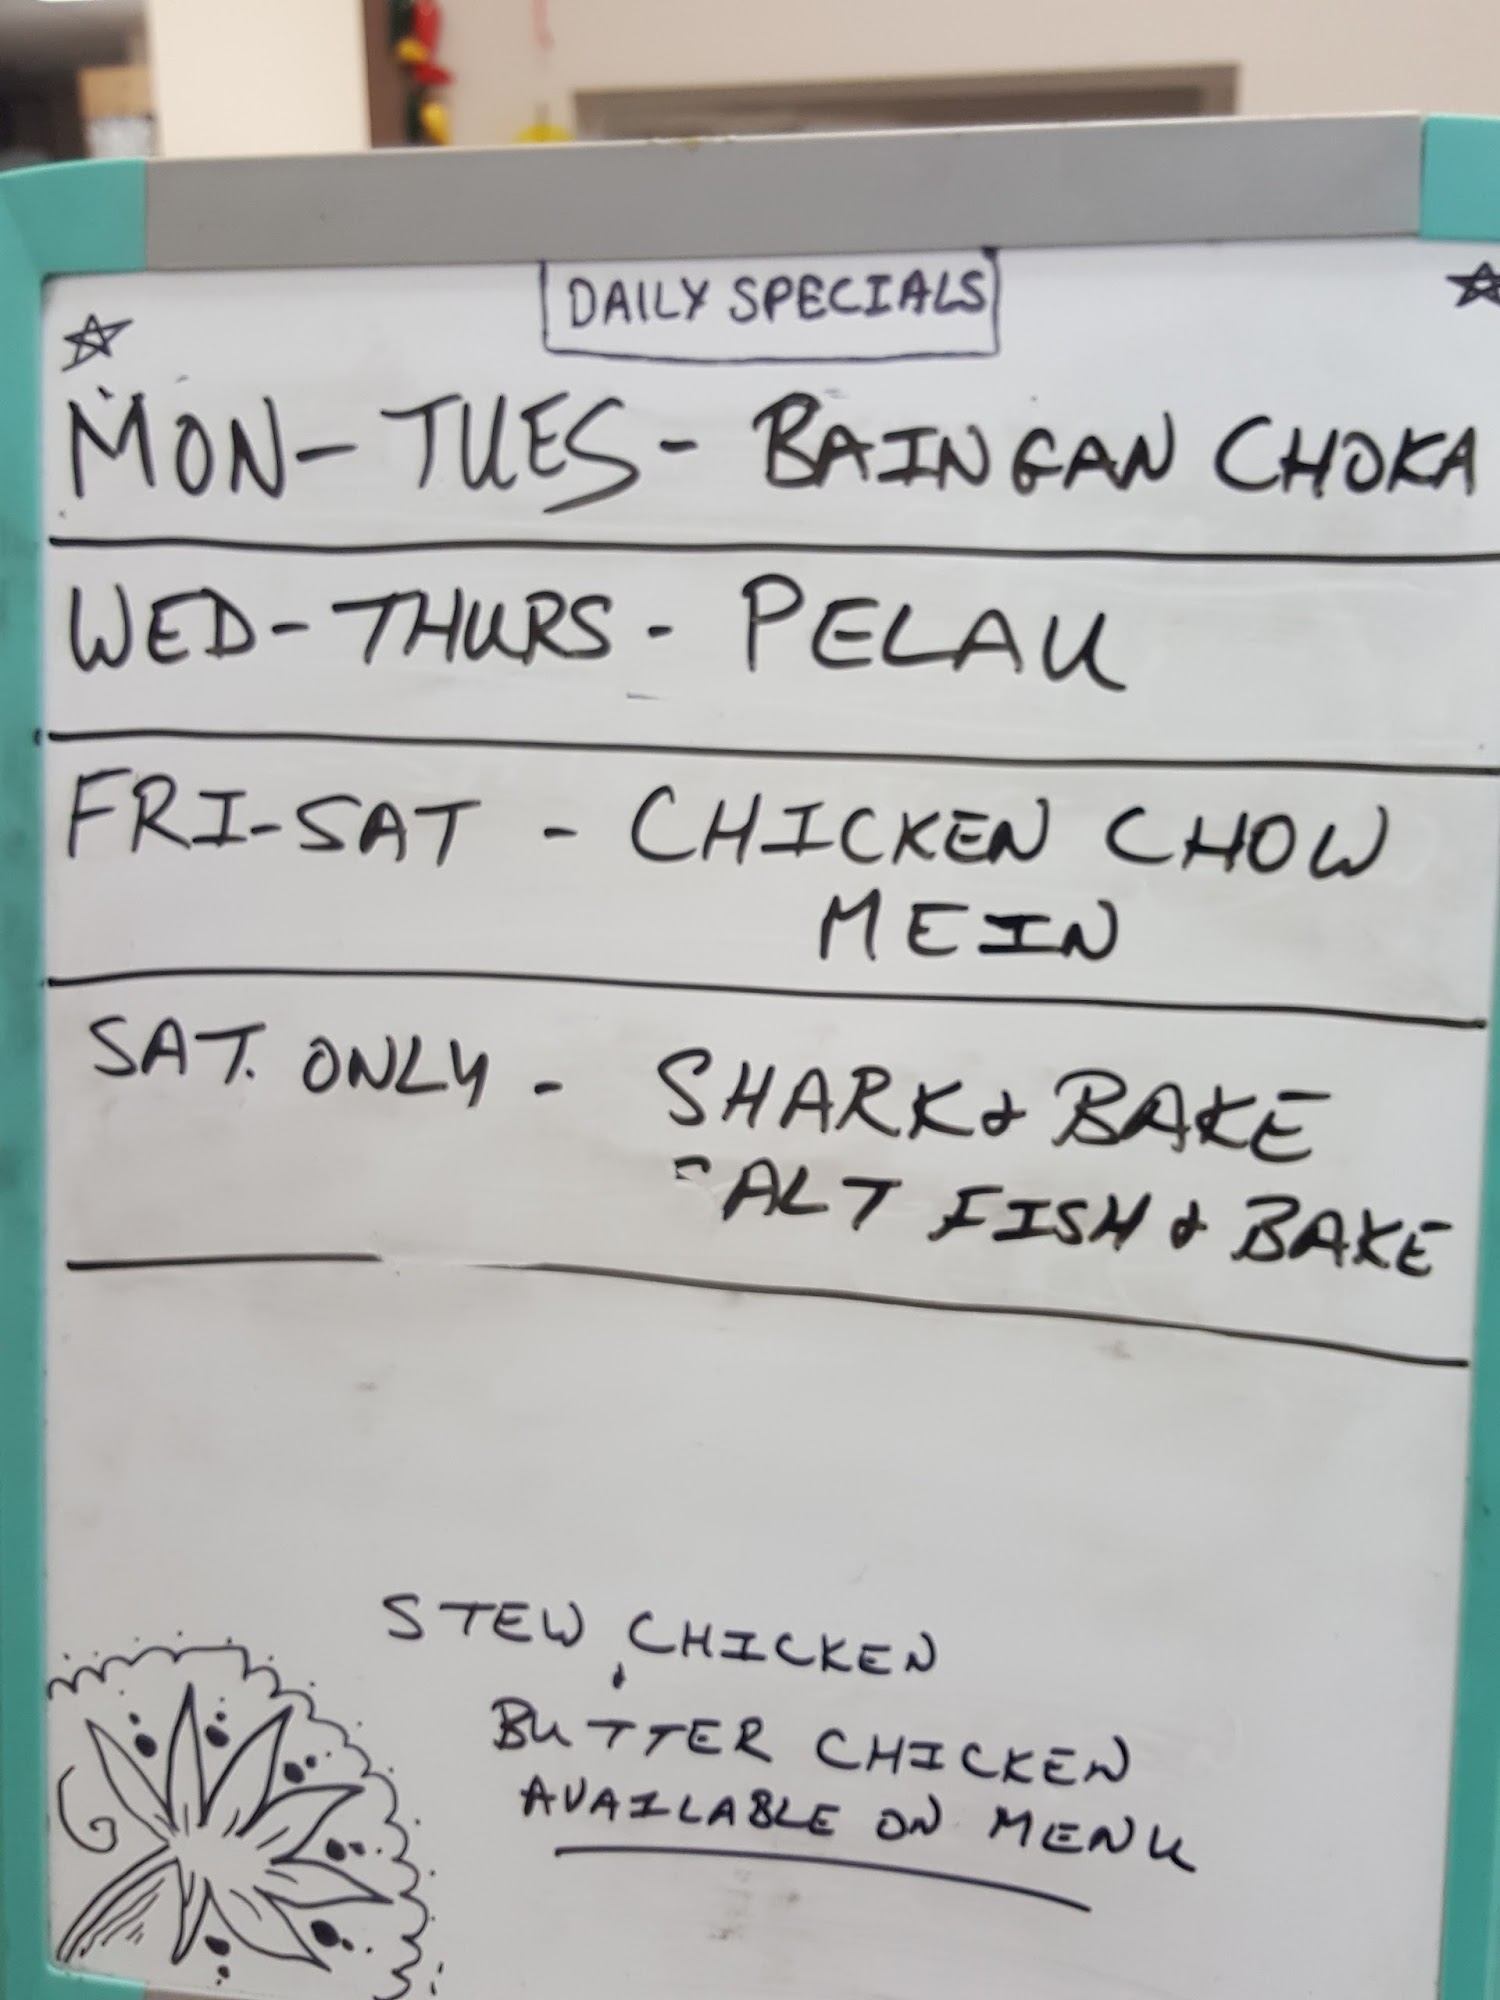 DAILY SPECIALS
MON-TUES - BAINGAN CHOKA
WED-THURS - PELAU
FRI-SAT - CHICKEN CHOW
MEIN
SAT. ONLY - SHARK & BAKE
SALT FISH & BAKE
STEW CHICKEN
&
BUTTER CHICKEN
AVAILABLE ON MENU